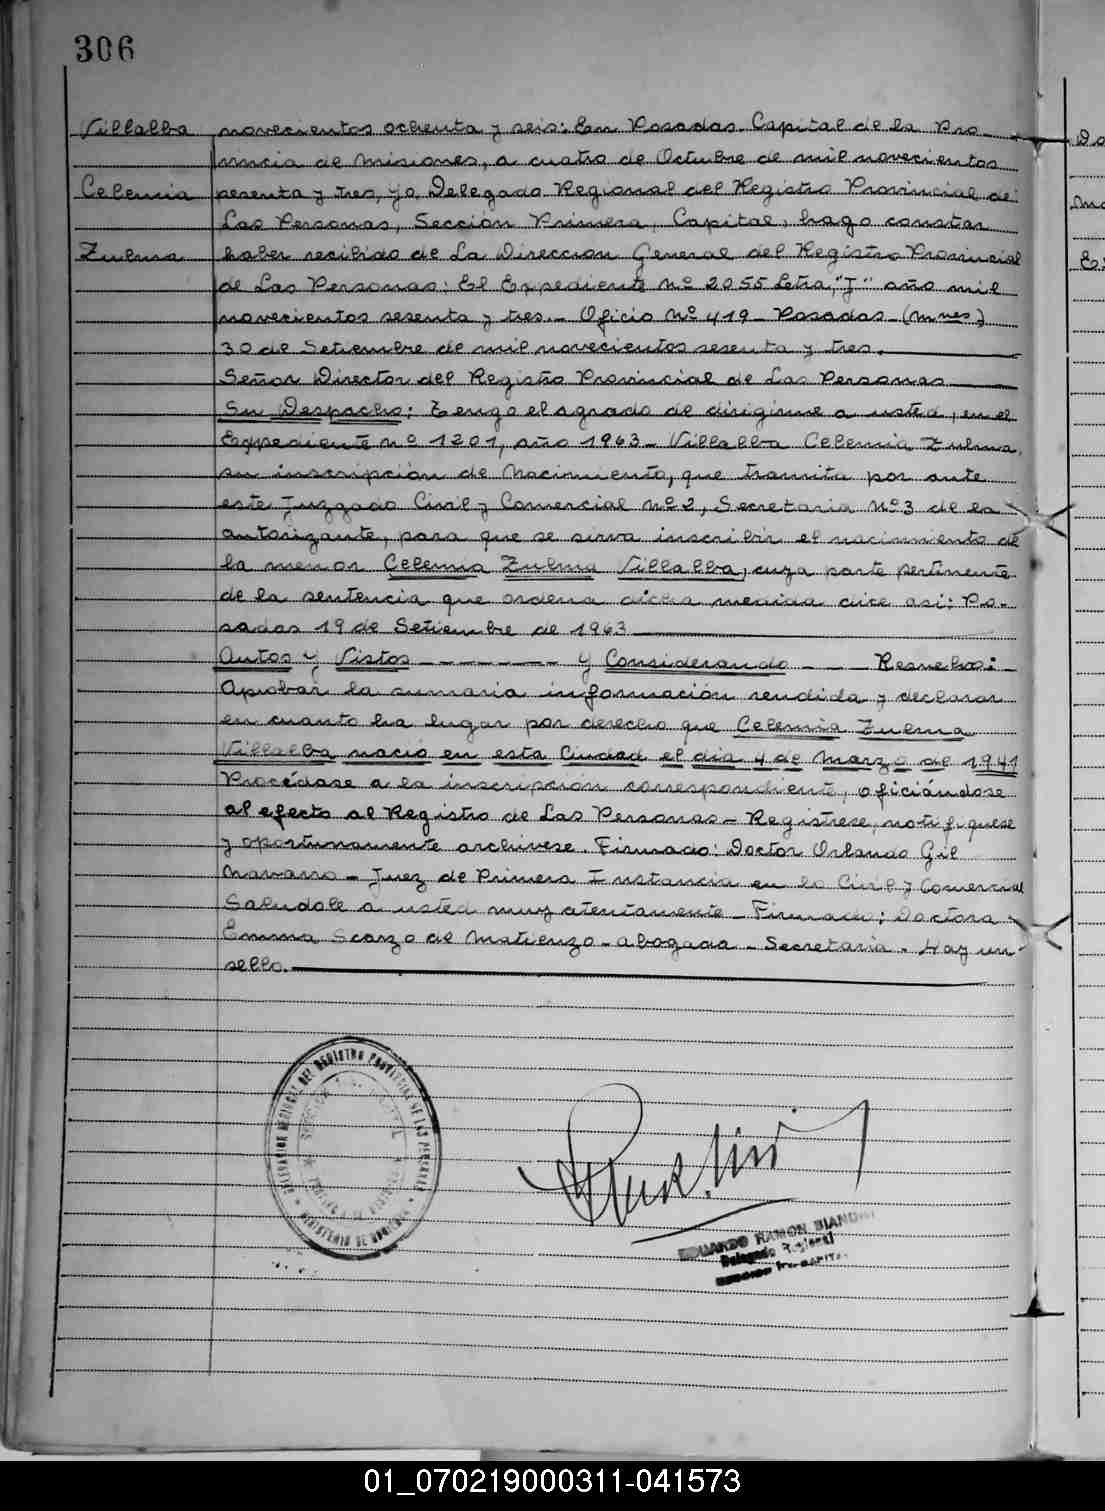 306
Villalba
Celemia
Zulma
novecientos ochenta y seis: En Posadas. Capital de la Pro-
vincia de Misiones, a cuatro de Octubre de mil novecientos
sesenta y tres, yo, Delegado Regional del Registro Provincial de
Las Personas, Sección Primera, Capital, hago constar
haber recibido de La Direccion General del Registro Provincial
de Las Personas: El Expediente nº 2055 Letra, "J" año mil
novecientos sesenta y tres.- Oficio Nº 419- Posadas-(mnes)
30 de Setiembre de mil novecientos sesenta y tres.
Señor Director del Registro Provincial de Las Personas
Su Despacho: Tengo el agrado de dirigirme a usted, en el
Expediente nº 1201, año 1963- Villalba Celemia Zulma,
su inscripción de Nacimiento, que tramita por ante
este Juzgado Civil y Comercial Nº 2, Secretaria Nº 3 de la
autorizante, para que se sirva inscribir el nacimiento de
la menor Celemia Zulma Villalba, cuya parte pertinente
de la sentencia que ordena dicha medida dice asi: Po-
sadas 19 de Setiembre de 1963
Autos y Vistos - - - - - - - y Considerando - - - Resuelvo:
Aprobar la sumaria información rendida y declarar
en cuanto ha lugar por derecho que Celemia Zulma
Villalba nació en esta Ciudad el dia 4 de Marzo de 1941
Procédase a la inscripción correspondiente, oficiándose
al efecto al Registro de Las Personas- Registrese, notifiquese
y oportunamente archivese. Firmado: Doctor Orlando Gil
Navarro - Juez de Primera Instancia en lo Civil y Comercial
Saludole a usted muy atentamente- Firmado: Doctora
Emma Scarzo de Matienzo- abogada- Secretaria. Hay un
sello.
DELEGACION REGIONAL DEL REGISTRO PROVINCIAL DE LAS PERSONAS
MINISTERIO DE GOBIERNO
EDUARDO RAMON BIANCHI
Delegado Regional
01_070219000311-041573